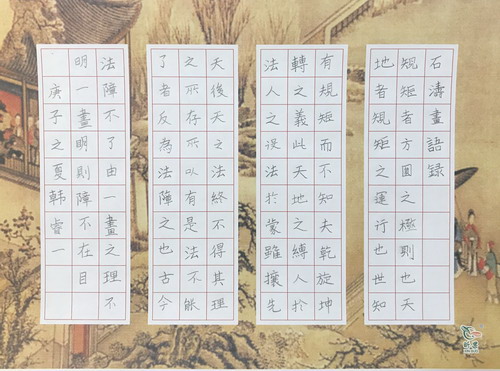 石濤畫語錄
規短者方圓之極則也天
地者規矩之運行也世知
有規短而不知夫乾旋坤
轉之義此天地之縛人於
法人之役法於蒙雖攘先
天後天之法終不得其理
之所存所以有是法不能
了者反為法障之也古今
法障不了由一畫之理不
明一畫明則障不在目
庚子之夏韓睿一